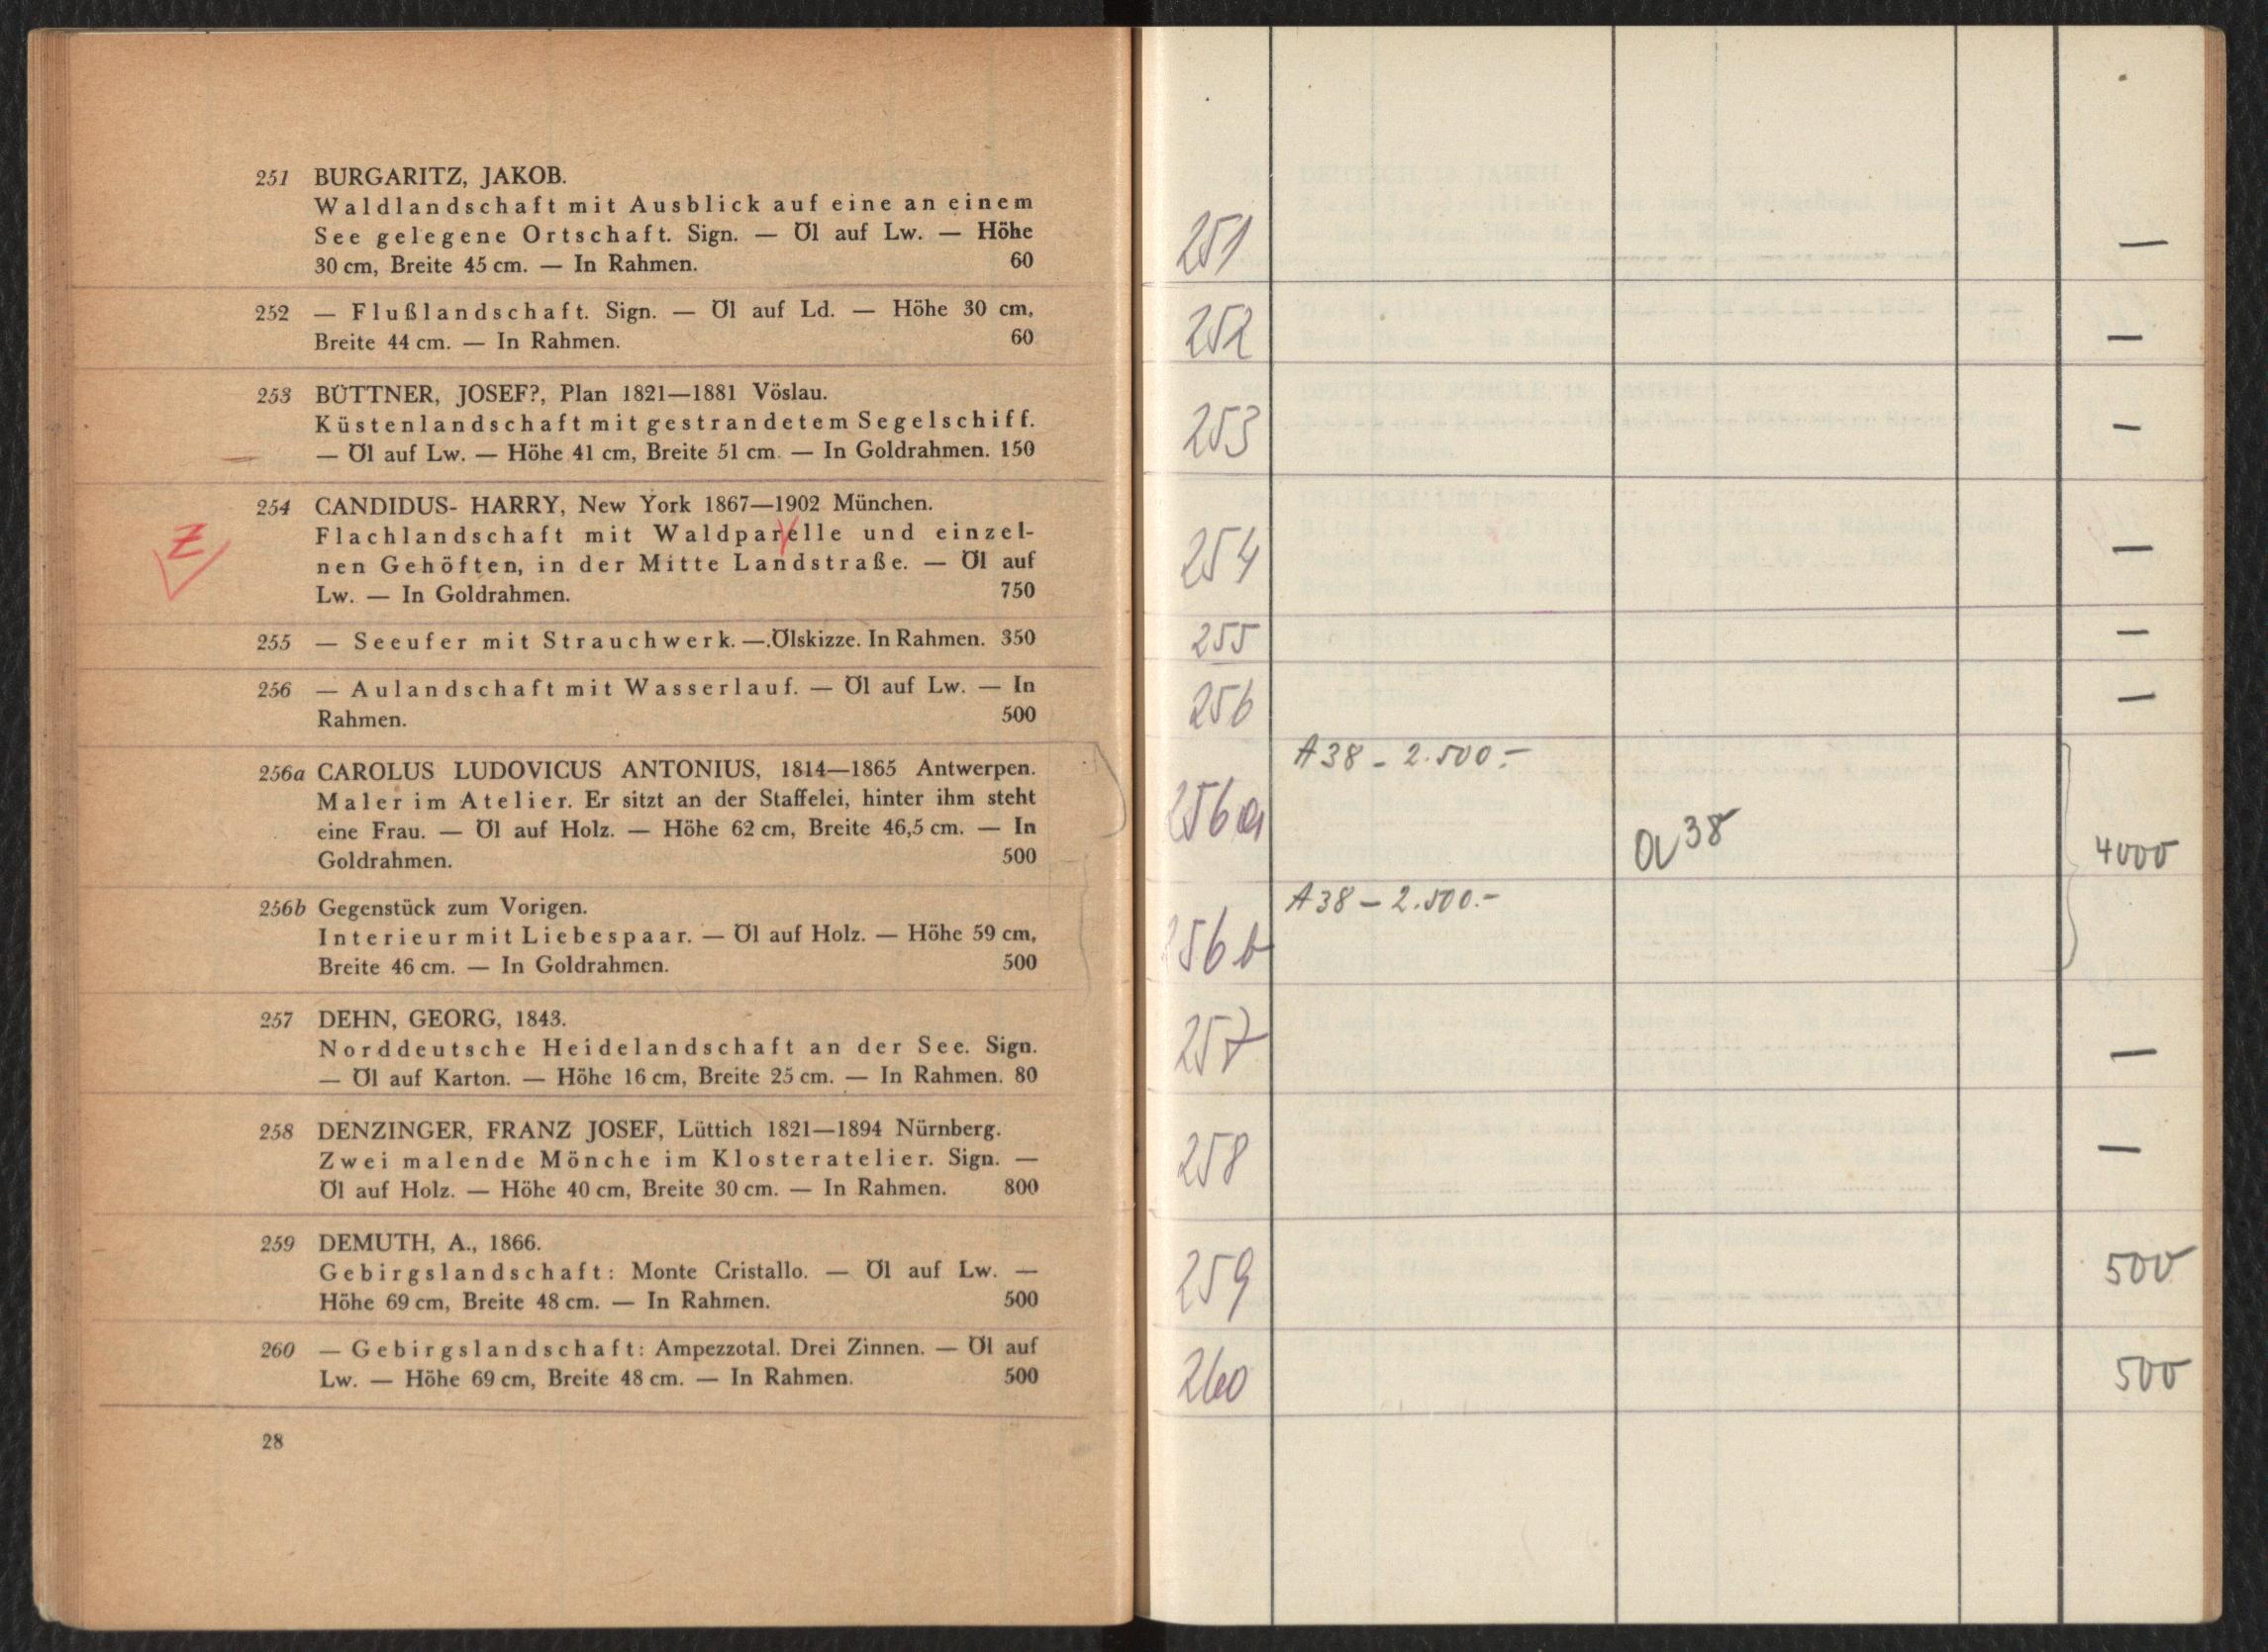 251 BURGARITZ, JAKOB.
Waldlandschaft mit Ausblick auf eine an einem
See gelegene Ortschaft. Sign. — Öl auf Lw. — Höhe
30 cm, Breite 45 cm. — In Rahmen. 60
252 — Flußlandschaft. Sign. — Öl auf Ld. — Höhe 30 cm,
Breite 44 cm. — In Rahmen. 60
253 BÜTTNER, JOSEF?, Plan 1821—1881 Vöslau.
Küstenlandschaft mit gestrandetem Segelschiff.
— Öl auf Lw. — Höhe 41 cm, Breite 51 cm. — In Goldrahmen. 150
254 CANDIDUS- HARRY, New York 1867—1902 München.
Flachlandschaft mit Waldparelle und einzel-
nen Gehöften, in der Mitte Landstraße. — Öl auf
Lw. — In Goldrahmen. 750
z
255 — Seeufer mit Strauchwerk. —.Ölskizze. In Rahmen. 350
256 — Aulandschaft mit Wasserlauf. — Öl auf Lw. — In
Rahmen. 500
256a CAROLUS LUDOVICUS ANTONIUS, 1814—1865 Antwerpen.
Maler im Atelier. Er sitzt an der Staffelei, hinter ihm steht
eine Frau. — Öl auf Holz. — Höhe 62 cm, Breite 46,5 cm. — In
Goldrahmen. 500
256b Gegenstück zum Vorigen.
Interieur mit Liebespaar. — Öl auf Holz. — Höhe 59 cm,
Breite 46 cm. — In Goldrahmen. 500
257 DEHN, GEORG, 1843.
Norddeutsche Heidelandschaft an der See. Sign.
— Öl auf Karton. — Höhe 16 cm, Breite 25 cm. — In Rahmen. 80
258 DENZINGER, FRANZ JOSEF, Lüttich 1821—1894 Nürnberg.
Zwei malende Mönche im Klosteratelier. Sign. —
Öl auf Holz. — Höhe 40 cm, Breite 30 cm. — In Rahmen. 800
259 DEMUTH, A., 1866.
Gebirgslandschaft: Monte Cristallo. — Öl auf Lw. —
Höhe 69 cm, Breite 48 cm. — In Rahmen. 500
260 — Gebirgslandschaft: Ampezzotal. Drei Zinnen. — Öl auf
Lw. — Höhe 69 cm, Breite 48 cm. — In Rahmen. 500
28
251 —
252 —
253 —
254 —
255 —
256 —
A 38 - 2.500.-
256a a 38 4000
A 38 - 2.500.-
256 b
257 —
258 —
259 500
260 500